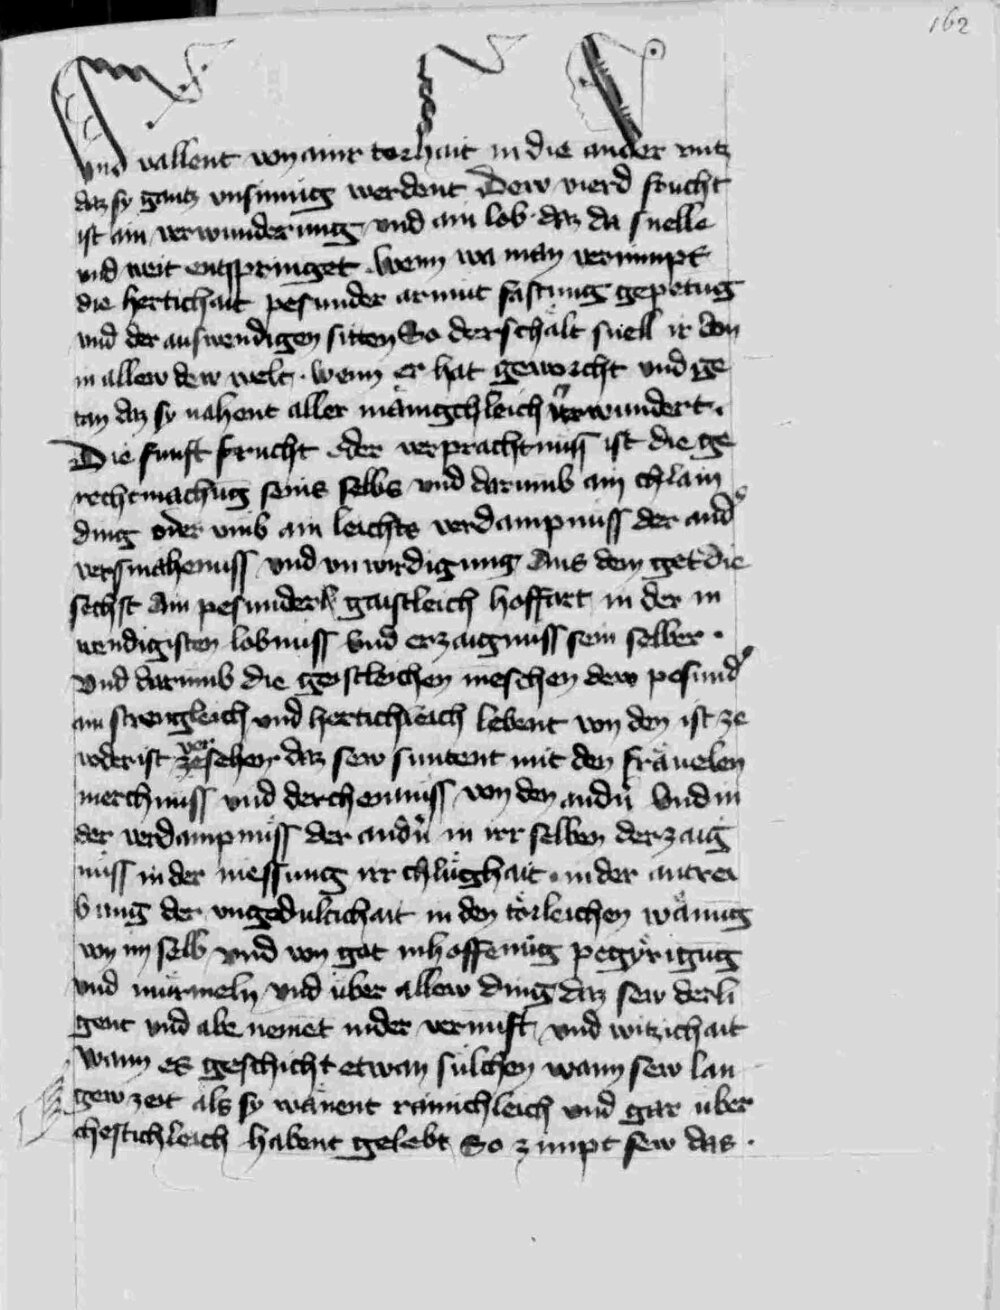 162
vnd vallent von ainr torhait in die ander untz
daz sy gantz unsinnig werdent Dew vierd frucht
ist ain verwunderung vnd ain lob daz da snelle
vnd weit entspringet. Wenn wa man vernimpt
die hertichait pesunder armut fastung gepetung
vnd der auswendigen sitten So derschält snell ir don
in allew dew welt. wenn er hat geworcht vnd ge
tan daz sy nahent aller mänigchleich verwundert.
Die funft frucht oder verprachtnuss ist die ge
rechtmachūg seins selbs vnd darumb ain chlain
ding oder vmb ain leichts verdampnuss der and'
versmahenuss vnd vnwirdigung Aus dem get die
sechst Ain pesunderlich gaistleich hoffart in der in
wendigisten lobnuss vnd erzaignuss sein selber.
Vnd darumb die geistleichen menschen dew pesund'
ain strengleich vnd hertichleich lebent von den ist ze
voderist ze versehen daz sew suntent mit den fräuelen
merchnuss vnd derchennuss von den andn̄ Vnd in
der verdampnüss der andn̄ in irr selben derzaig
nuss in der messung irr chlüghait. in der antrei
bung der vngedultichait in den törleichen wänūg
von im selb vnd von got inhoffenūg pegyrigūg
vnd mürmeln vnd über allew ding daz sew derli
gent vnd abnemēt in der vernuft vnd witzichait
Wann es geschicht etwan sülchen wann sew lan
gew zeit als sy wänent rainichleich vnd gar über
chestichleich habent gelebt So zimpt sew das.